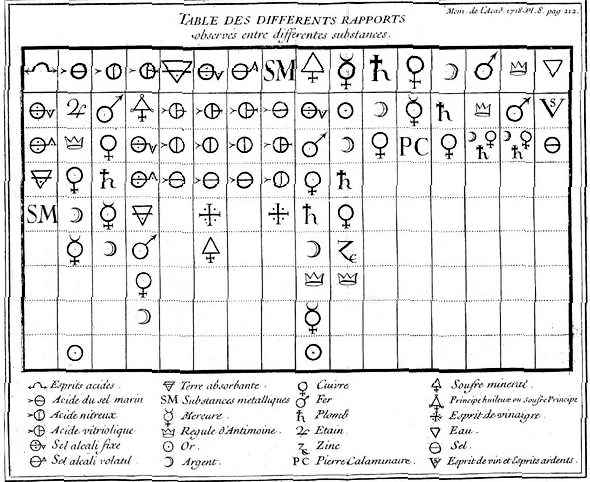 Mem. de l'Acad. 1718. Pl. 8. pag. 212.
TABLE DES DIFFERENTS RAPPORTS
observés entre differentes substances.
SM
PC
SM
Esprits acides.
Acide du sel marin
Acide nitreux
Acide vitriolique
Sel alcali fixe
Sel alcali volatil
Terre absorbante.
SM Substances metalliques
Mercure.
Regule d'Antimoine.
Or.
Argent.
Cuivre
Fer
Plomb
Etain
Zinc
PC Pierre Calaminaire.
Soufre mineral.
Principe huileux ou soufre Principe
Esprit de vinaigre.
Eau.
Sel.
Esprit de vin et Esprits ardents.